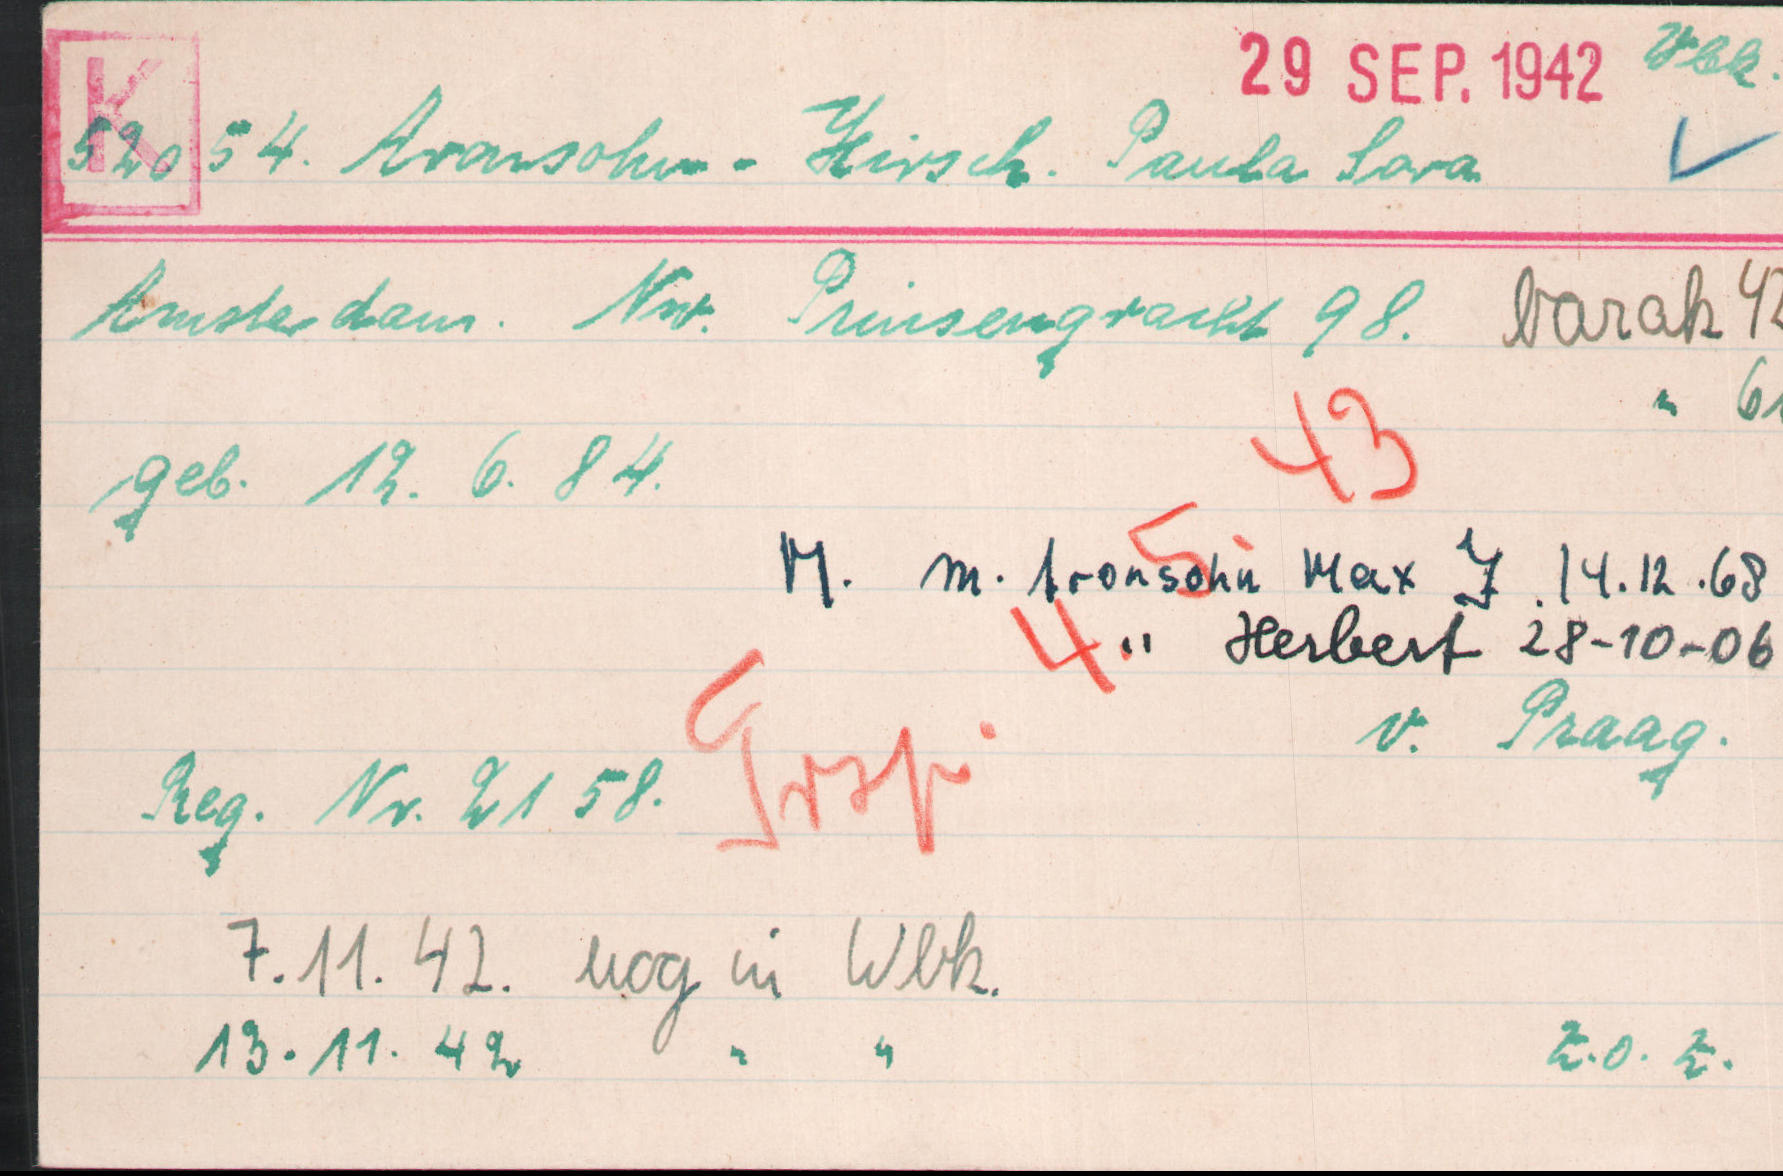 K
29 SEP. 1942 Wbk.
52054. Aronsohn - Hirsch. Paula Sara
Amsterdam. Nw. Prinsengracht 98. barak 42
" 6
geb. 12. 6. 84.
43
5.
M. m. Aronsohn Max I. 14.12.68
4. " Herbert 28-10-06
v. Praag.
Reg. Nr. 2158.
7.11.42. nog in Wbk.
13.11.42 " " Z.O.Z.